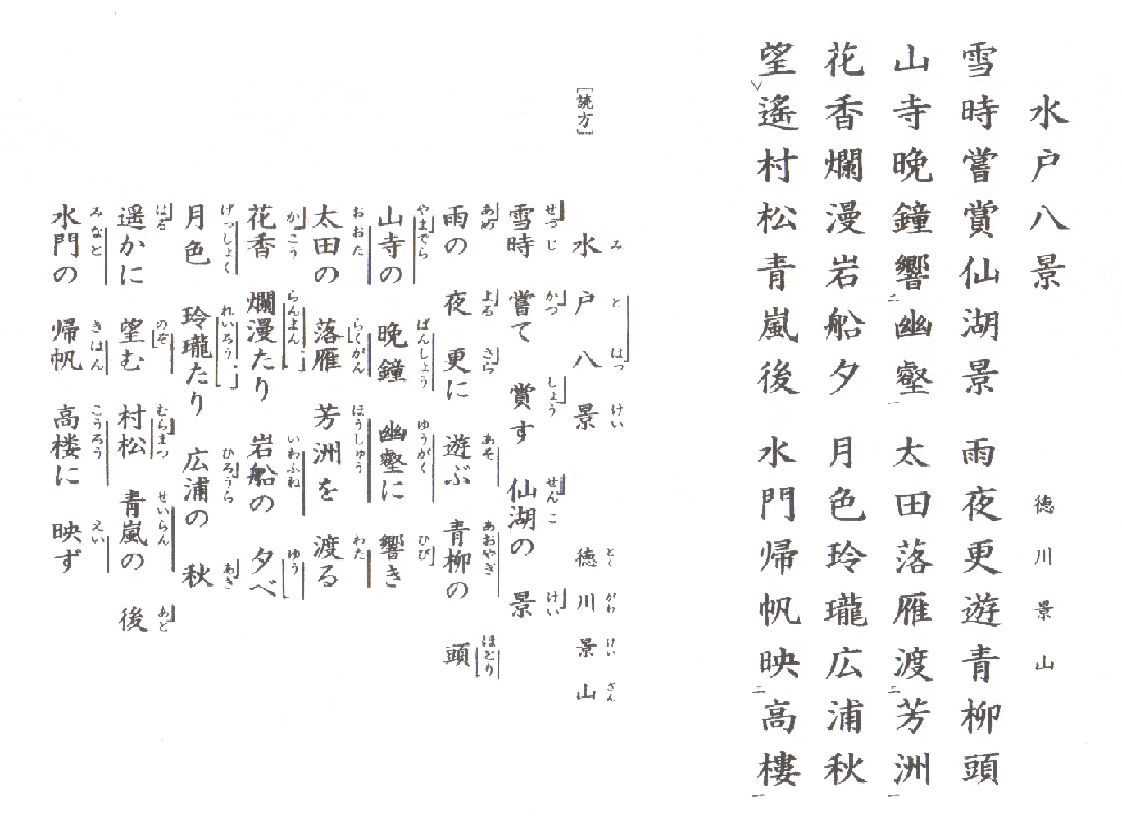 水戸八景 徳川景山
雪時嘗賞仙湖景 雨夜更遊青柳頭
山寺晩鐘響二幽壑一 太田落雁渡二芳洲一
花香爛漫岩船夕 月色玲瓏広浦秋
望レ遙村松青嵐後 水門帰帆映二高樓一
[読方]
み と はっ けい とく がわ けい ざん
水戸八景 徳川景山
せつじ かつ しょう せんこ けい
雪時 嘗て 賞す 仙湖の 景
あめ よる さら あそ あおやぎ ほとり
雨の 夜 更に 遊ぶ 青柳の 頭
やまでら ばんしょう ゆうがく ひび
山寺の 晩鐘 幽壑に 響き
おおた らくがん ほうしゅう わた
太田の 落雁 芳洲を 渡る
かこう らんまん いわふね ゆう
花香 爛漫たり 岩船の 夕べ
げっしょく れいろう ひろうら あき
月色 玲瓏たり 広浦の 秋
はる のぞ むらまつ せいらん あと
遥かに 望む 村松 青嵐の 後
みなと きはん こうろう えい
水門の 帰帆 高楼に 映ず